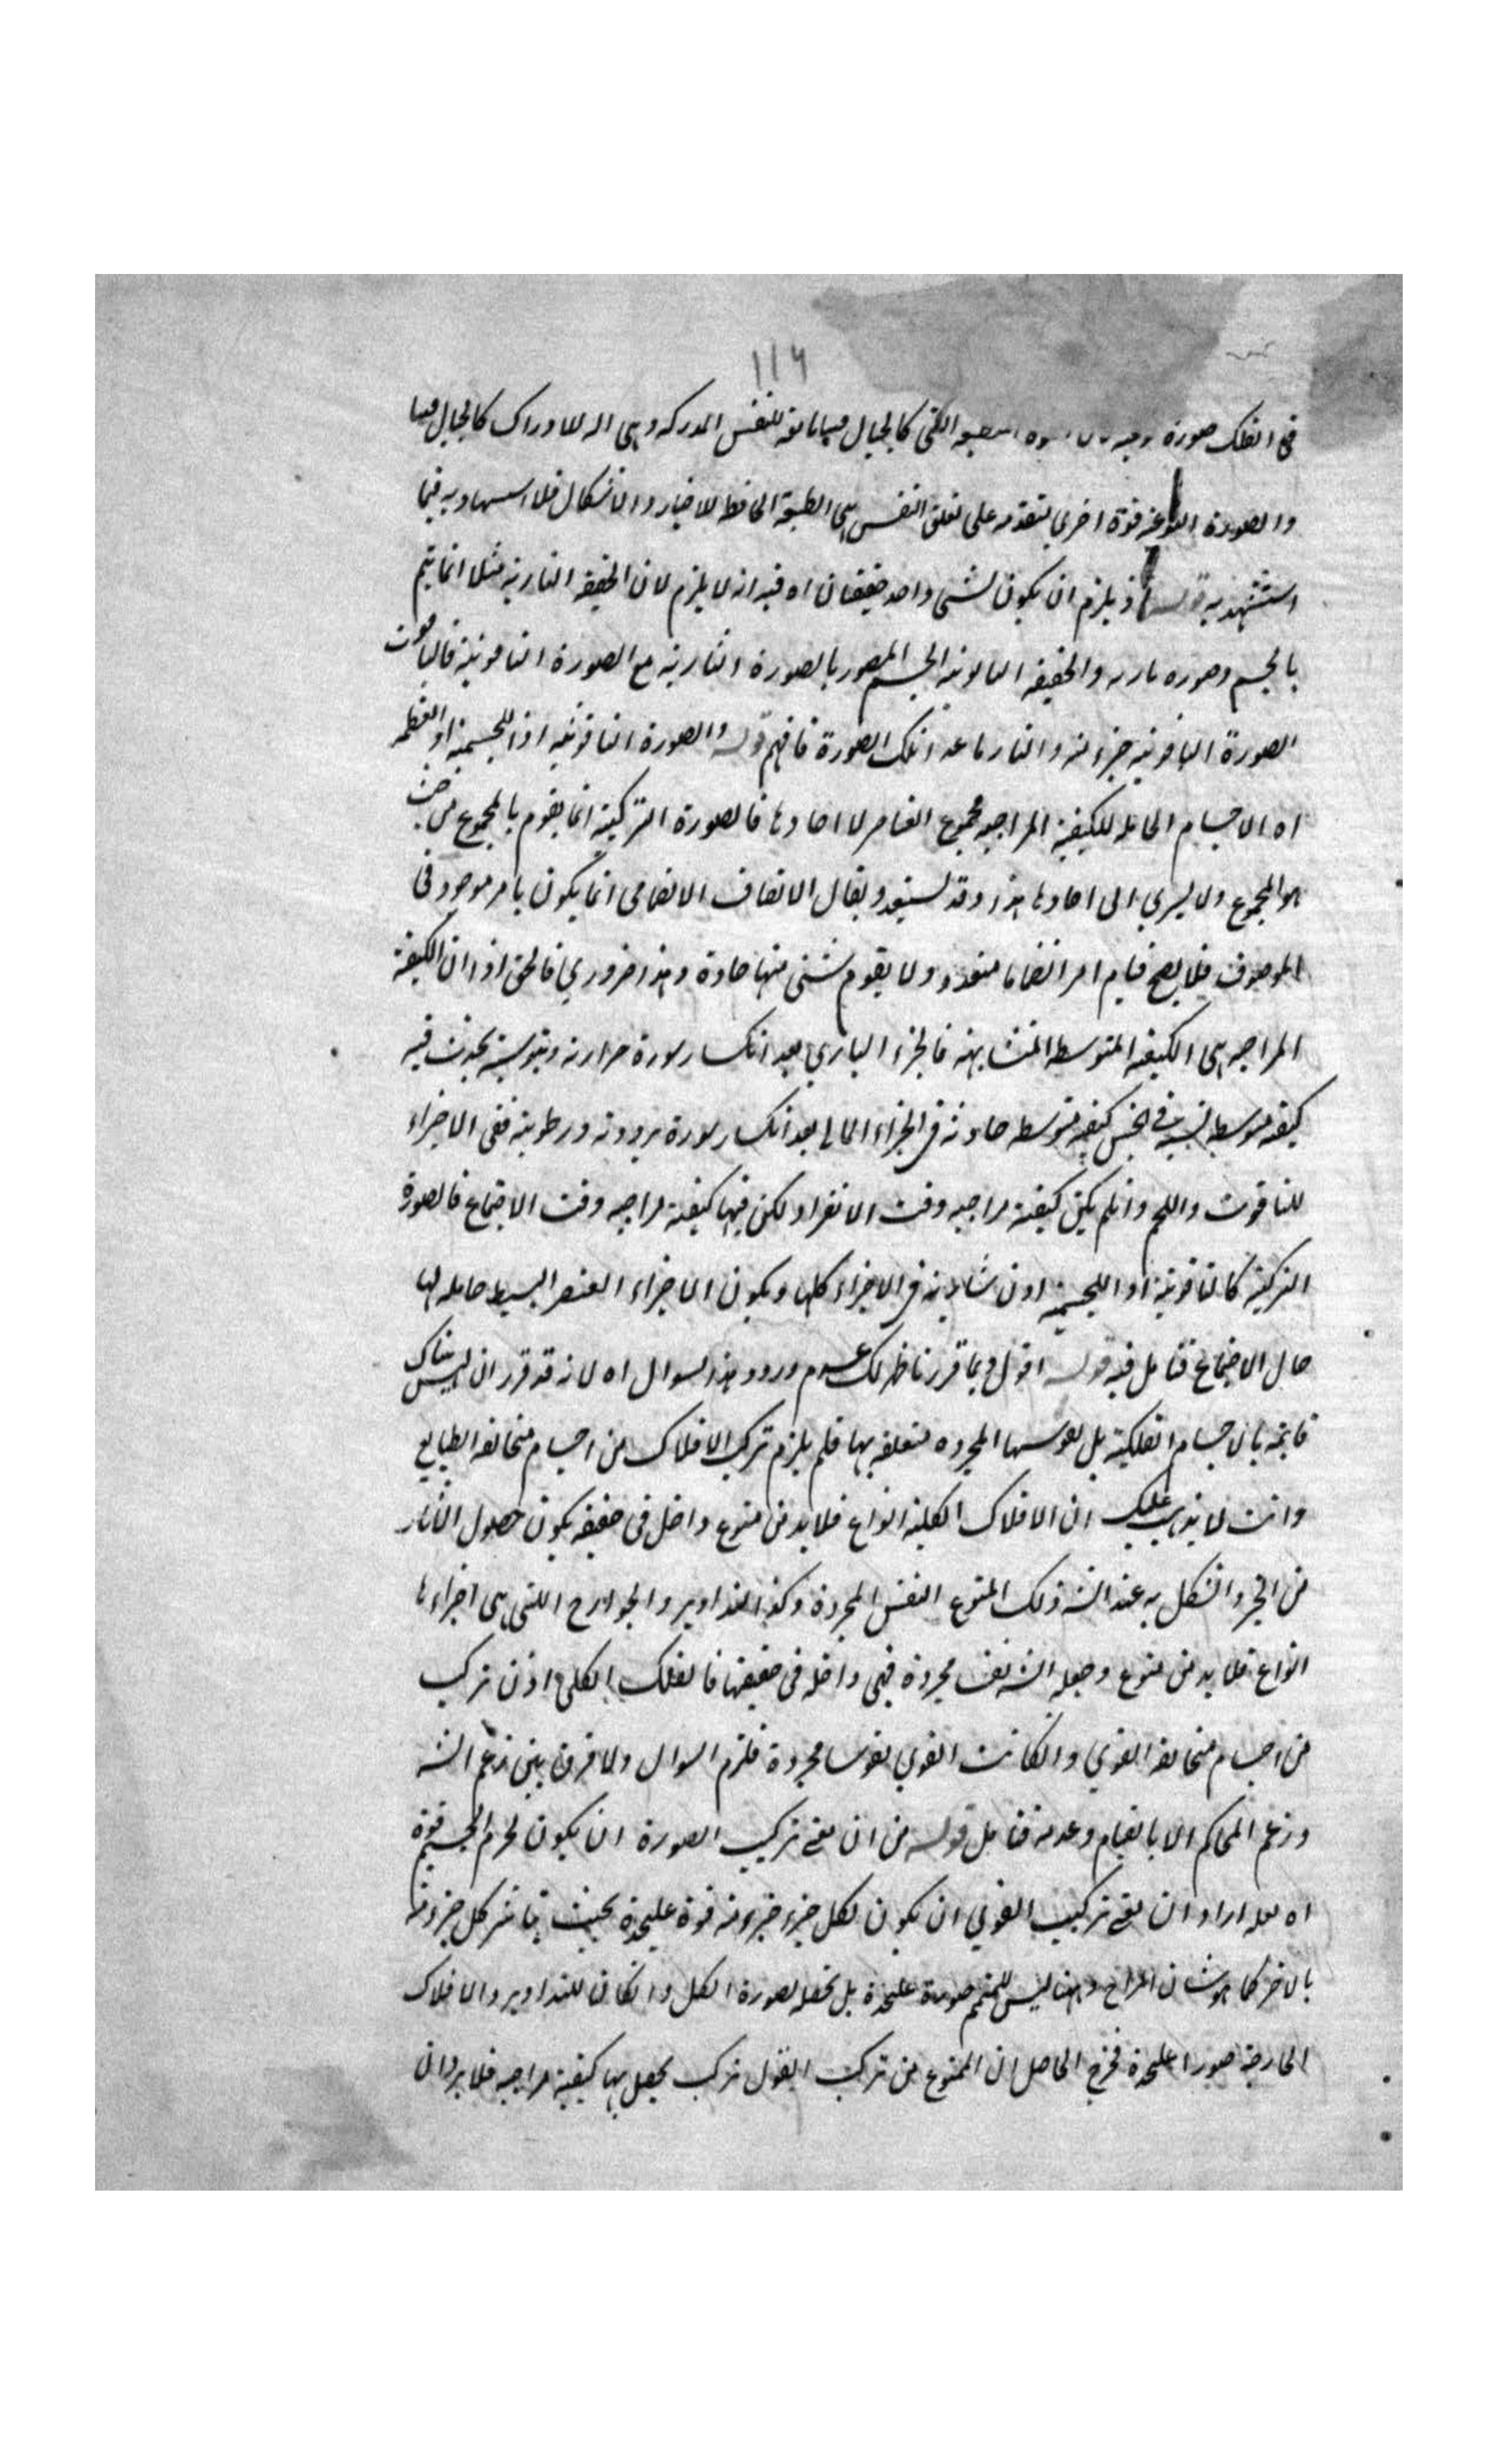 ١١٦
فى الفلك صورة كالخيال فينا للنفس المدركة وهى اله للادراك كالخيال فينا
والصورة النوعيه قوة اخرى متقدمه على تعلق النفس هى الطبيعة الحافظ للاحياز والاشكال فلا فيما
استشهد به قوله اذ يلزم ان يكون لشئ واحد حقيقتان اه فيه انه لا يلزم لان الحقيقه الناريه مثلا انما يتم
بالجسم وصوره ناريه والحقيقه الياقوتيه الجسم المصور بالصورة الناريه مع الصورة الياقوتيه فالياقوت
الصورة الياقوتيه جزء منه والنار ما عدا تلك الصورة فافهم قوله والصورة الياقوتيه او اللحميه او العظميه
اه الاجسام الحامله للكيفية المزاجيه مجموع العناصر لا احادها فالصورة التركيبيه انما يقوم بالمجموع من حيث
هو المجموع ولا يسري الى احادها هذا وقد يستبعد ويقال الاتصاف الانضمامى انما يكون بامر موجود فى
الموصوف فلا يصح قيام امر انضماما متعدد ولا يقوم شئ منها حادة وهذا ضروري فالحق اذا ان الكيفية
المزاجيه هى الكيفيه المتوسطه المتشابهه فالجزء الناري بعد انكسار سورة حرارته ويبوسته يحدث فيه
كيفيه متوسطه فى الجنس كيفيه متوسطه حادثه فى الجزء المائى بعد انكسار سورة برودته ورطوبته ففى الاجزاء
للياقوت واللحم وان لم يكن كيفية مزاجيه وقت الانفراد لكن فيها كيفية مزاجيه وقت الاجتماع فالصورة
التركيبيه كالياقوتيه او اللحميه اذن ساريه فى الاجزاء كلها ويكون الاجزاء العنصر البسيط حامله لها
حال الاجتماع فتأمل فيه قوله اقول وبما قررنا ظهر لك عدم ورود هذا السوال اه لانه قد قرر ان ليس هناك
قائمة بالاجسام الفلكية بل نفوسها المجرده متعلقه بها فلم يلزم تركب الافلاك من اجسام متخالفه الطبايع
وانت لا يذهب عليك ان الافلاك الكليه انواع فلا بد من منوع داخل فى حقيقه يكون حصول الاثار
من الحيز والشكل به عند الشه ذلك المنوع النفس المجردة وكذا التداوير والخوارج اللتى هى اجزاءها
انواع فلا بد من منوع وجعله الشه نفسا مجردة فهى داخله فى حقيقتها فالفلك الكلى اذن تركب
من اجسام متخالفه القوي وان كانت القوي نفوسا مجردة فلزم السوال ولا فرق بين زعم الشه
وزعم المحاكم الا بالقيام وعدمه فتأمل قوله من ان معنى تركيب الصورة ان يكون لجرم الجسم قوة
اه لعله اراد ان معنى تركيب القوي ان يكون لكل جزء جزء منه قوة عليحدة بحيث يتاثر كل جزء منه
بالاخر كما هو شان المزاج وههنا ليس للمتمم صورة عليحدة بل تحفله صورة الكل وان كان للتداوير والافلاك
الخارجة صورا عليحدة فخرج الحاصل ان الممنوع من تركب القوى تركب يحصل بها كيفية مزاجيه فلا يرد ان